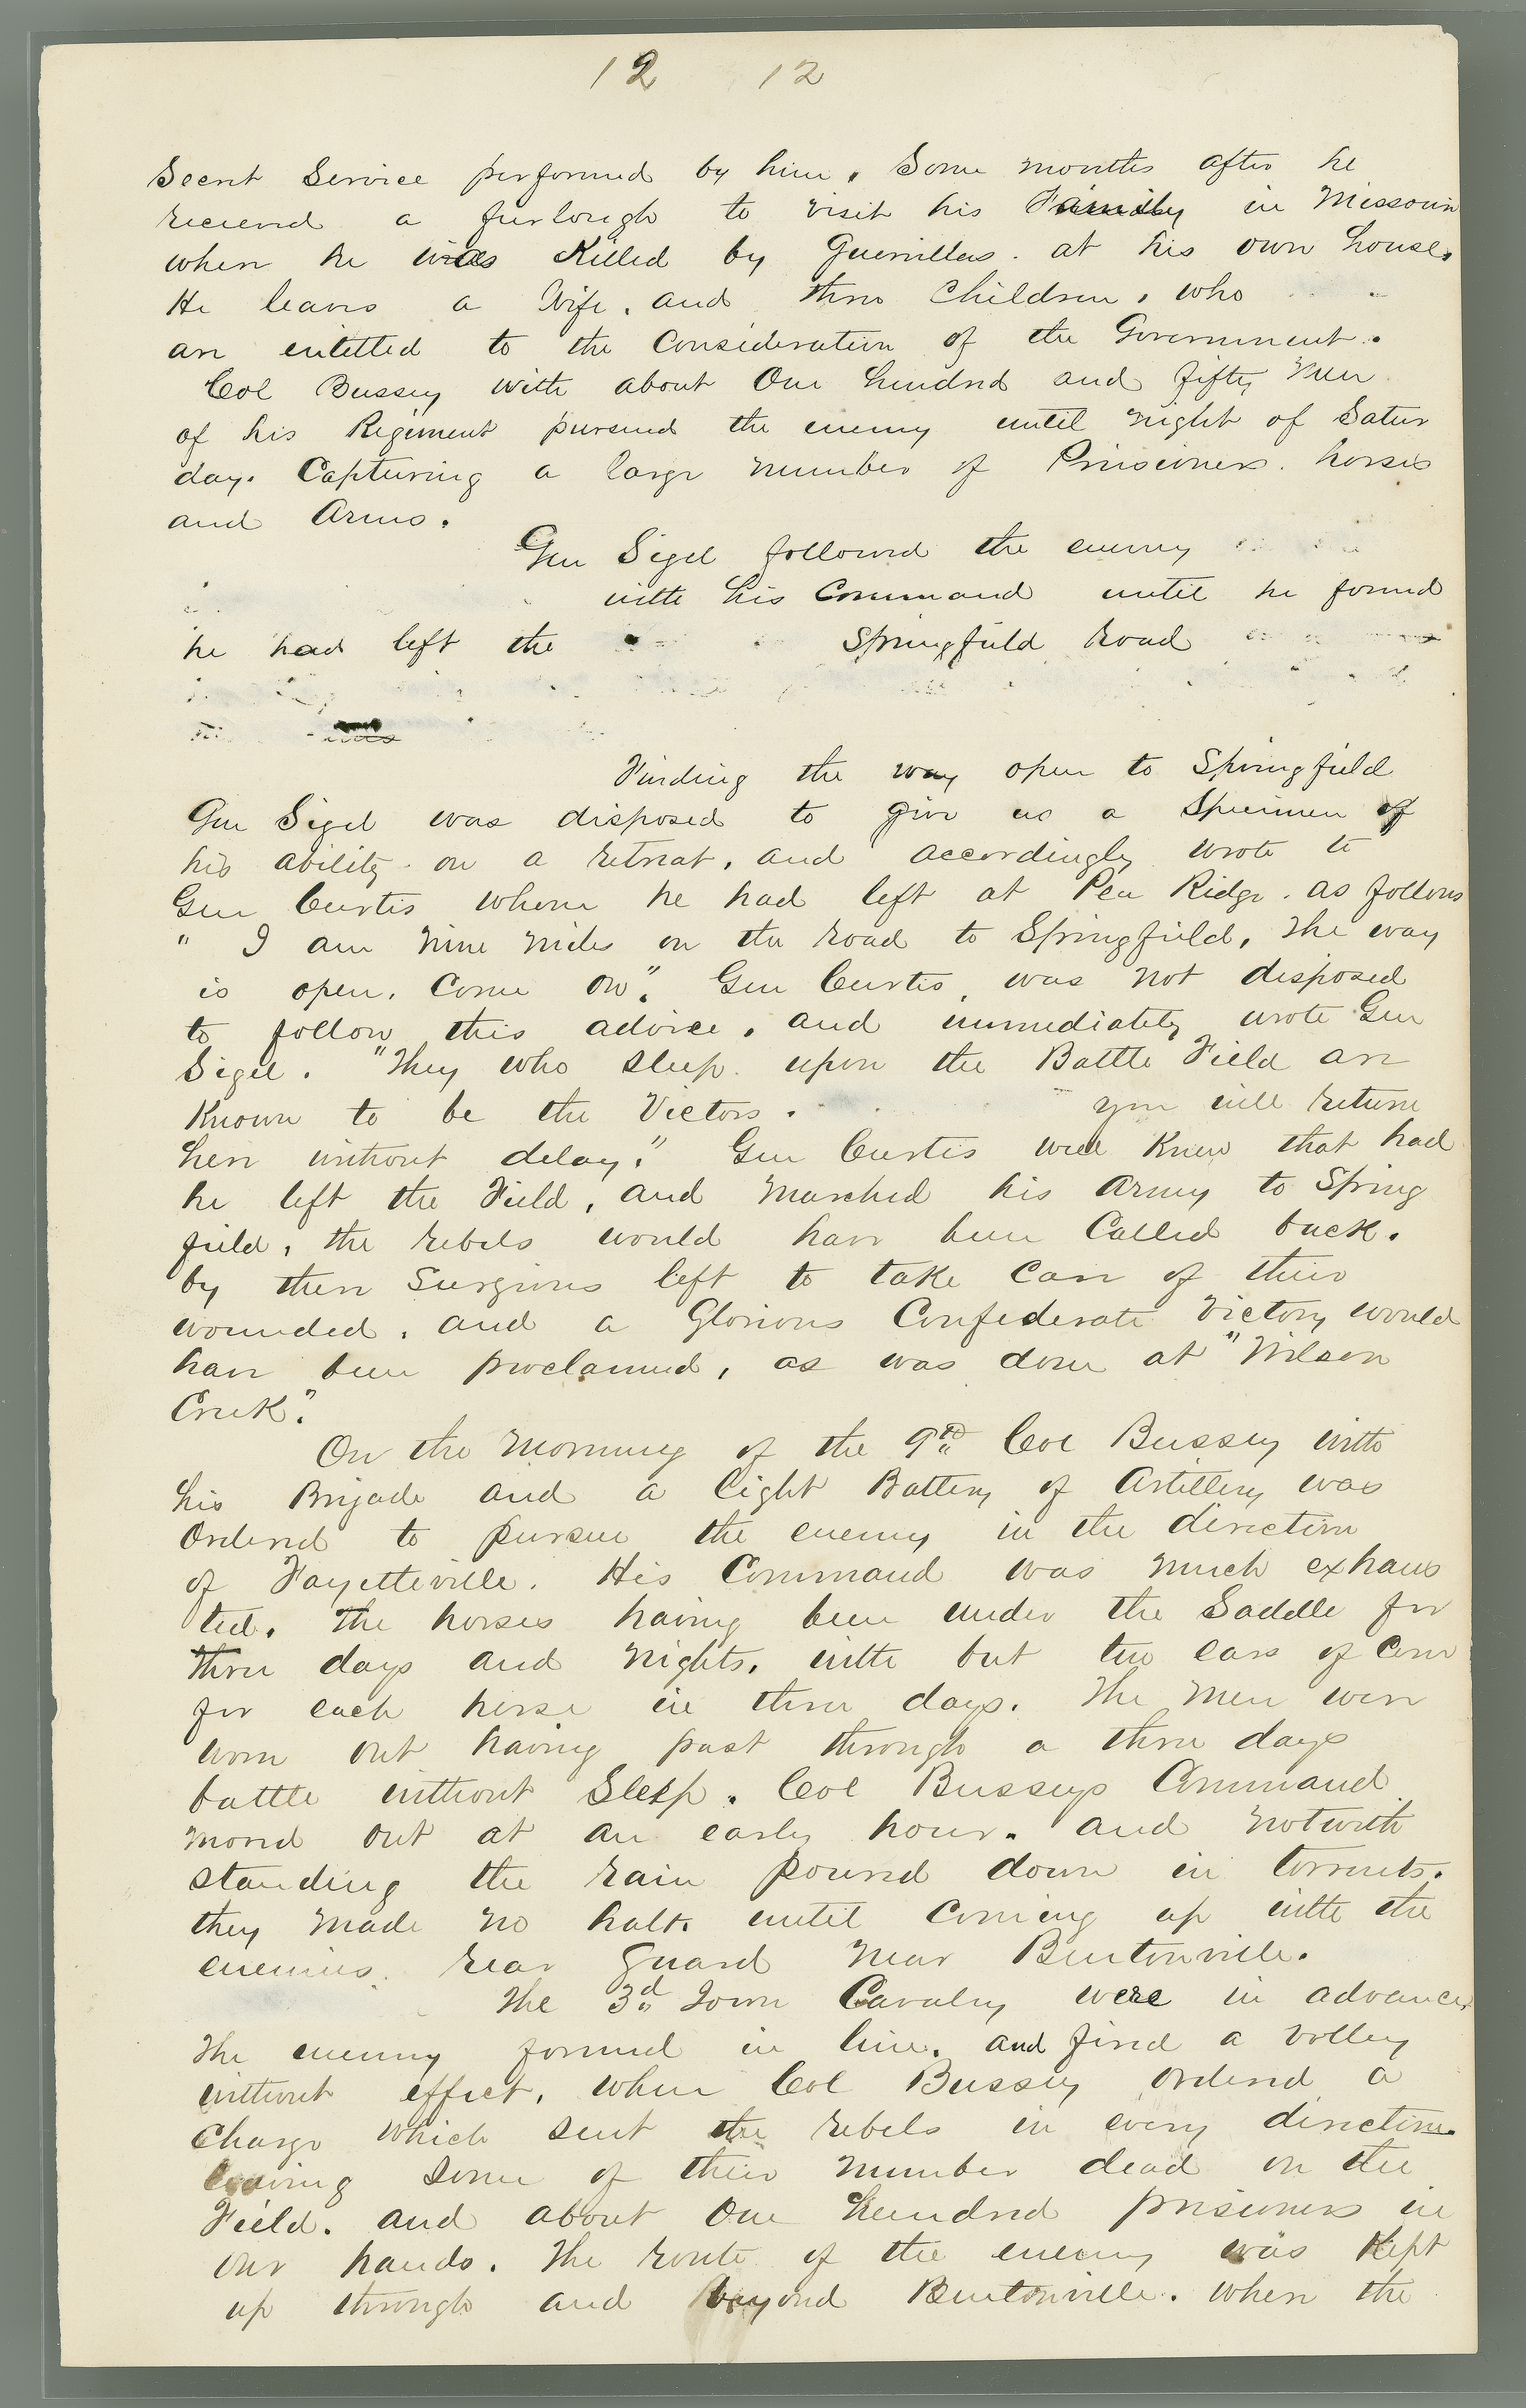 12 12
Secret Service performed by him. Some months after he
recieved a furlough to visit his Family in Missouri
when he was Killed by Guerrillas. at his own house.
He leaves a Wife, and three Children, who
are entitled to the Consideration of the Government.
Col Bussey with about One hundred and fifty Men
of his Regiment pursued the enemy until night of Satur
day. Capturing a large number of Prisoners. horses
and Arms.
Gen Sigel followed the enemy
with his Command until he found
he had left the Springfield road
was
Finding the way open to Springfield
Gen Sigel was disposed to give us a Specimen of
his ability on a retreat, and accordingly wrote to
Gen Curtis whom he had left at Pea Ridge. as follows
" I am nine miles on the road to Springfield, The way
is open. Come on". Gen Curtis, was not disposed
to follow this advice, and immediately wrote Gen
Sigel. "They who sleep upon the Battle Field are
Known to be the Victors. you will return
here without delay." Gen Curtis well Knew that had
he left the Field, and marched his Army to Spring
field, the rebels would have been Called back.
by their Surgeons left to take Care of their
wounded, and a Glorious Confederate Victory would
have been proclaimed, as was done at "Wilson
Creek".
On the Morning of the 9th Col Bussey with
his Brigade and a Light Battery of Artillery was
Ordered to pursue the enemy in the direction
of Fayetteville. His Command was much exhaus
ted. The horses having been under the Saddle for
three days and nights, with but two ears of Corn
for each horse in three days. The Men were
worn out having past through a three days
battle without Sleep. Col Busseys Command
moved out at an early hour. and notwith
standing the rain poured down in torrents.
they made no halt. until coming up with the
enemies. rear guard near Bentonville.
The 3d Iowa Cavalry were in advance.
The enemy formed in line. and fired a volley
without effect, when Col Bussey ordered a
Charge which sent the rebels in every direction.
leaving some of their number dead on the
Field. and about One hundred prisoners in
our hands. The route of the enemy was Kept
up through and beyond Bentonville. when the